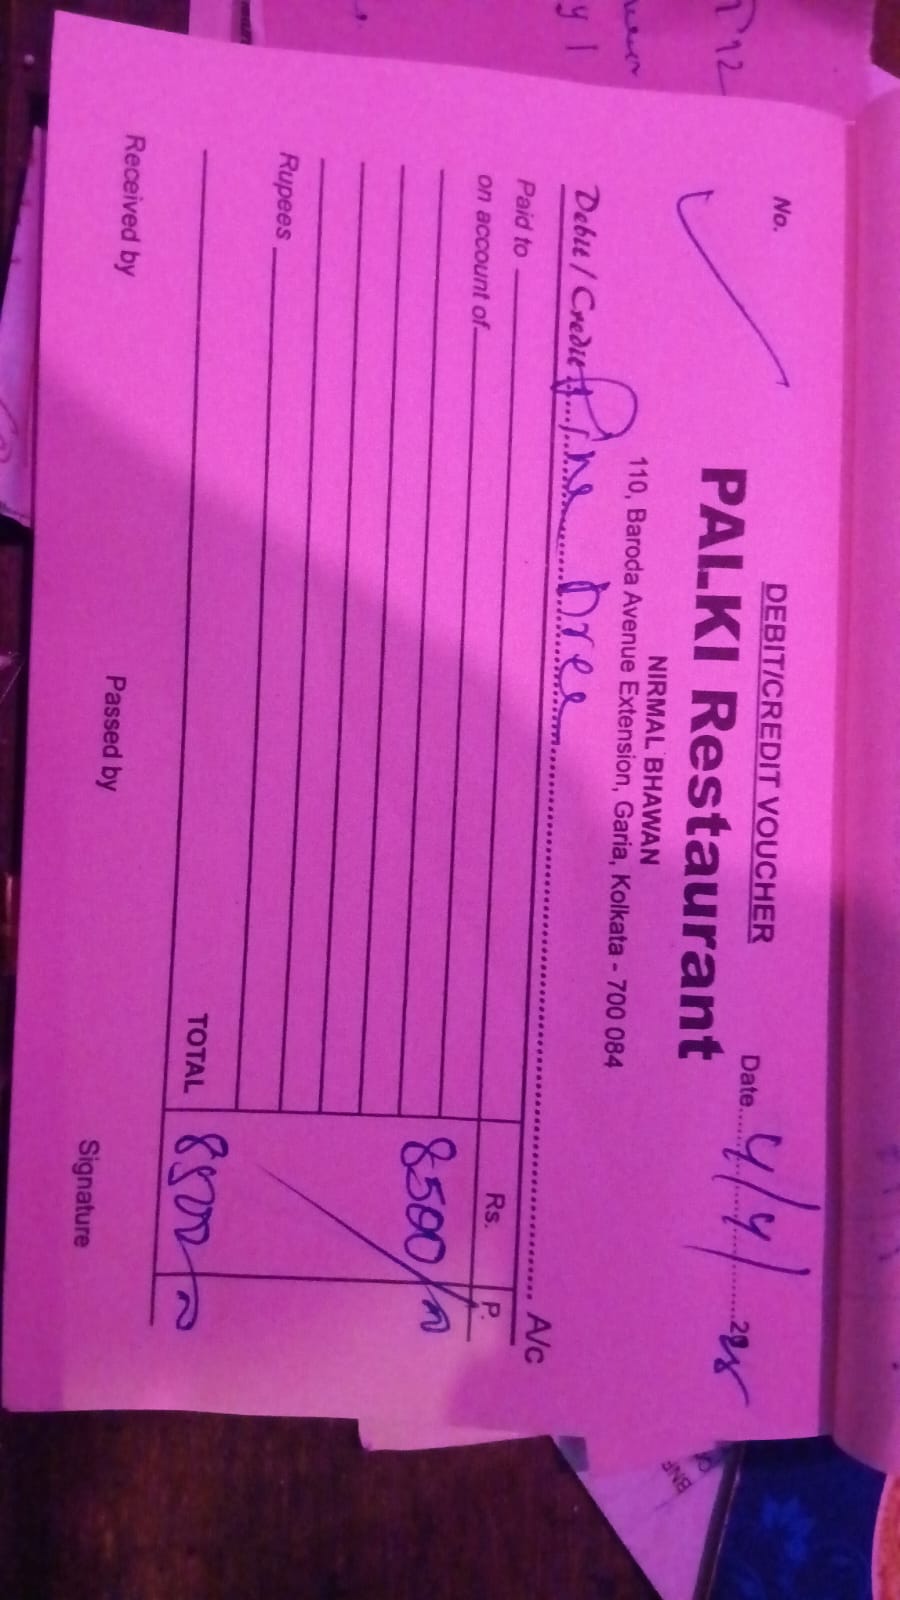 DEBIT/CREDIT VOUCHER
No. Date 4/4/ 2025
PALKI Restaurant
NIRMAL BHAWAN
110, Baroda Avenue Extension, Garia, Kolkata - 700 084
Debit / Credit A/c
Paid to Rs. P.
on account of
8500/-
Rupees
TOTAL 8500/-
Received by Passed by Signature